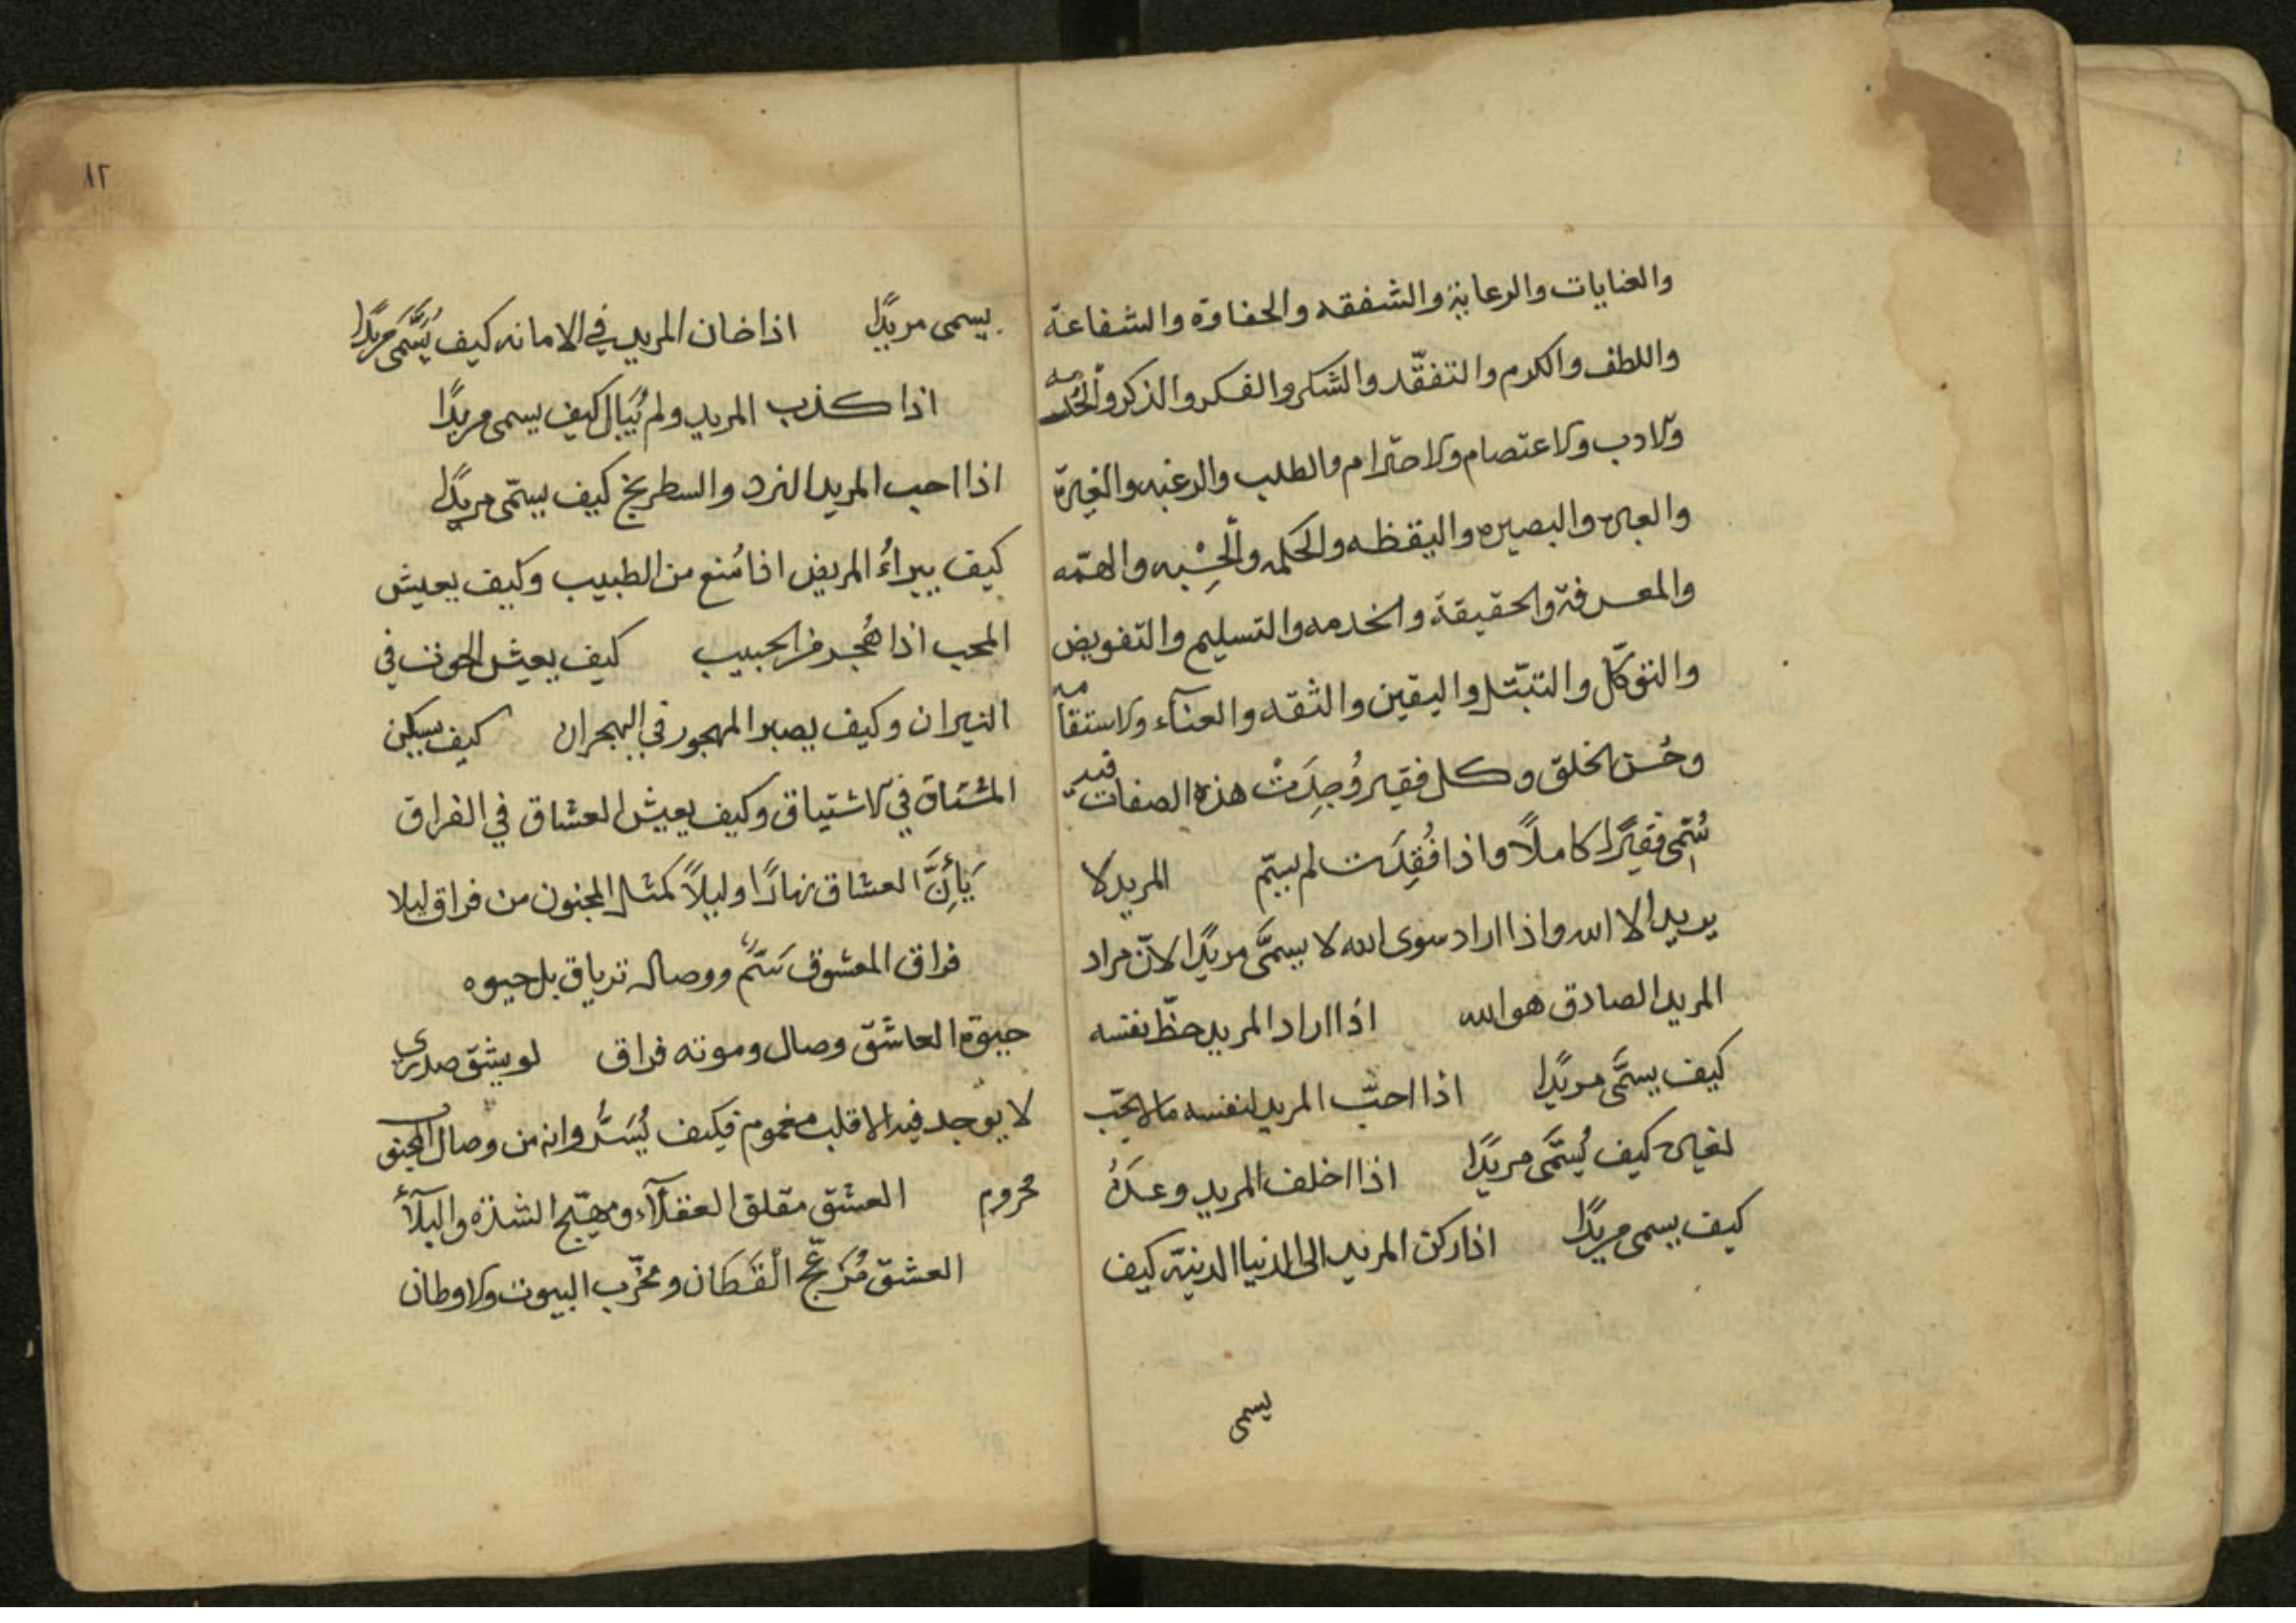 والعنايات والرعاية والشفقه والحفاوة والشفاعة
واللطف والكرم والتفقّد والشكر والفكر والذكر والخدمه
والادب والاعتصام والاحترام والطلب والرغبه والغيرة
والعبره والبصيره واليقظه والحكمه والحِسْبه والهمّه
والمعرفة والحقيقة والخدمه والتسليم والتفويض
والتوكّل والتبتّل واليقين والثقه والعنآء والاستقامه
وحُسن الخلق وكل فقير وُجِدَتْ هذه الصفات فيه
سُمّى فقيرًا كاملًا واذا فُقِدَت لم يسمّ المريد لا
يريد الا الله واذا اراد سوى الله لا يسمَّى مريدًا لانّ مراد
المريد الصادق هو الله اذا اراد المريد حظّ نفسه
كيف يسمَّى مريدًا اذا احبّ المريد لنفسه ما لا يحبّ
لغيره كيف يُسَمَّى مريدًا اذا اخلف المريد وعدَهُ
كيف يسمى مريدًا اذا ركن المريد الى الدنيا الدنيّه كيف
يسمى
١٢
يسمى مريدًا اذا خان المريد في الامانه كيف يُسَمَّى مريدًا
اذا كذب المريد ولم يُبال كيف يسمى مريدًا
اذا احب المريد النرد والسطرنج كيف يسمّى مريدًا
كيف يبراءُ المريض اذا مُنع من الطبيب وكيف يعيش
المحب اذا هُجر من الحبيب كيف يعيش الحوت في
النيران وكيف يصبر المهجور في الهجران كيف يسكن
المشتاق في الاشتياق وكيف يعيش العشاق في الفراق
يَأِنَّ العشاق نهارًا وليلًا كمثل المجنون من فراق ليلا
فراق المعشوق سَمٌّ ووصاله ترياق بل حيوه
حيوة العاشق وصال وموته فراق لو يشق صدري
لا يوجد فيه الا قلب مغموم فكيف يُسَرُّ وانه من وصال المحبوب
محروم العشق مقلق العقلآء ومهيّج الشدّة والبلآء
العشق مُزعّج الْقَطَان ومخرّب البيوت والاوطان